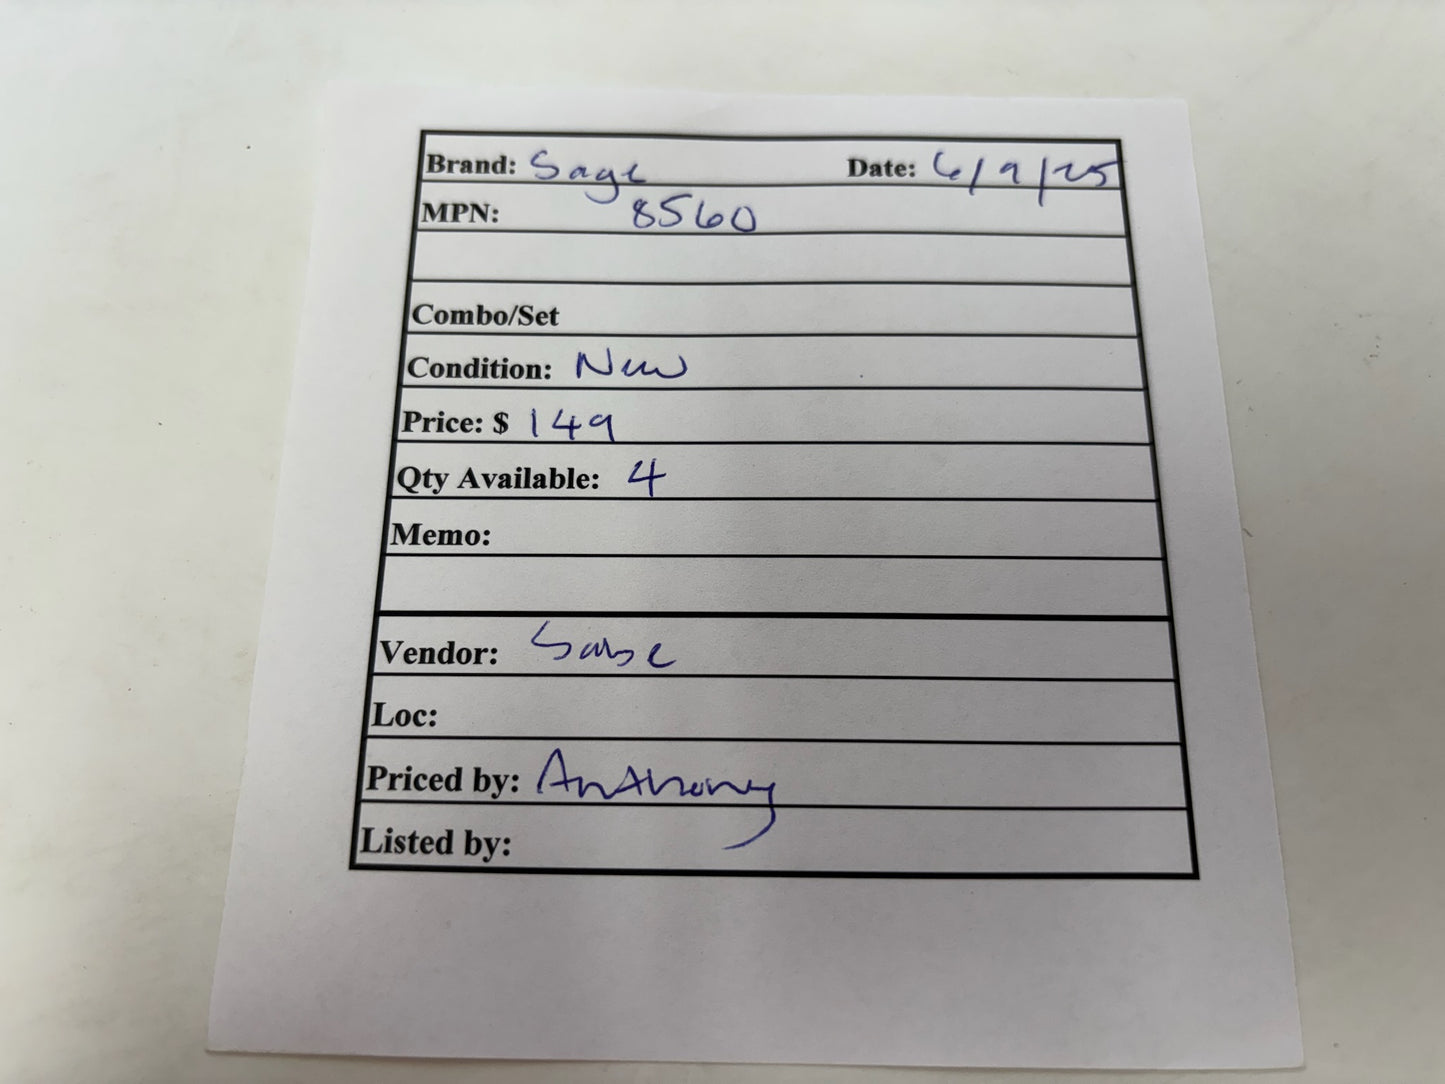 Brand: Sage Date: 6/9/25
MPN: 8560
Combo/Set
Condition: New
Price: $ 149
Qty Available: 4
Memo:
Vendor:
Loc:
Priced by: Anthony
Listed by: